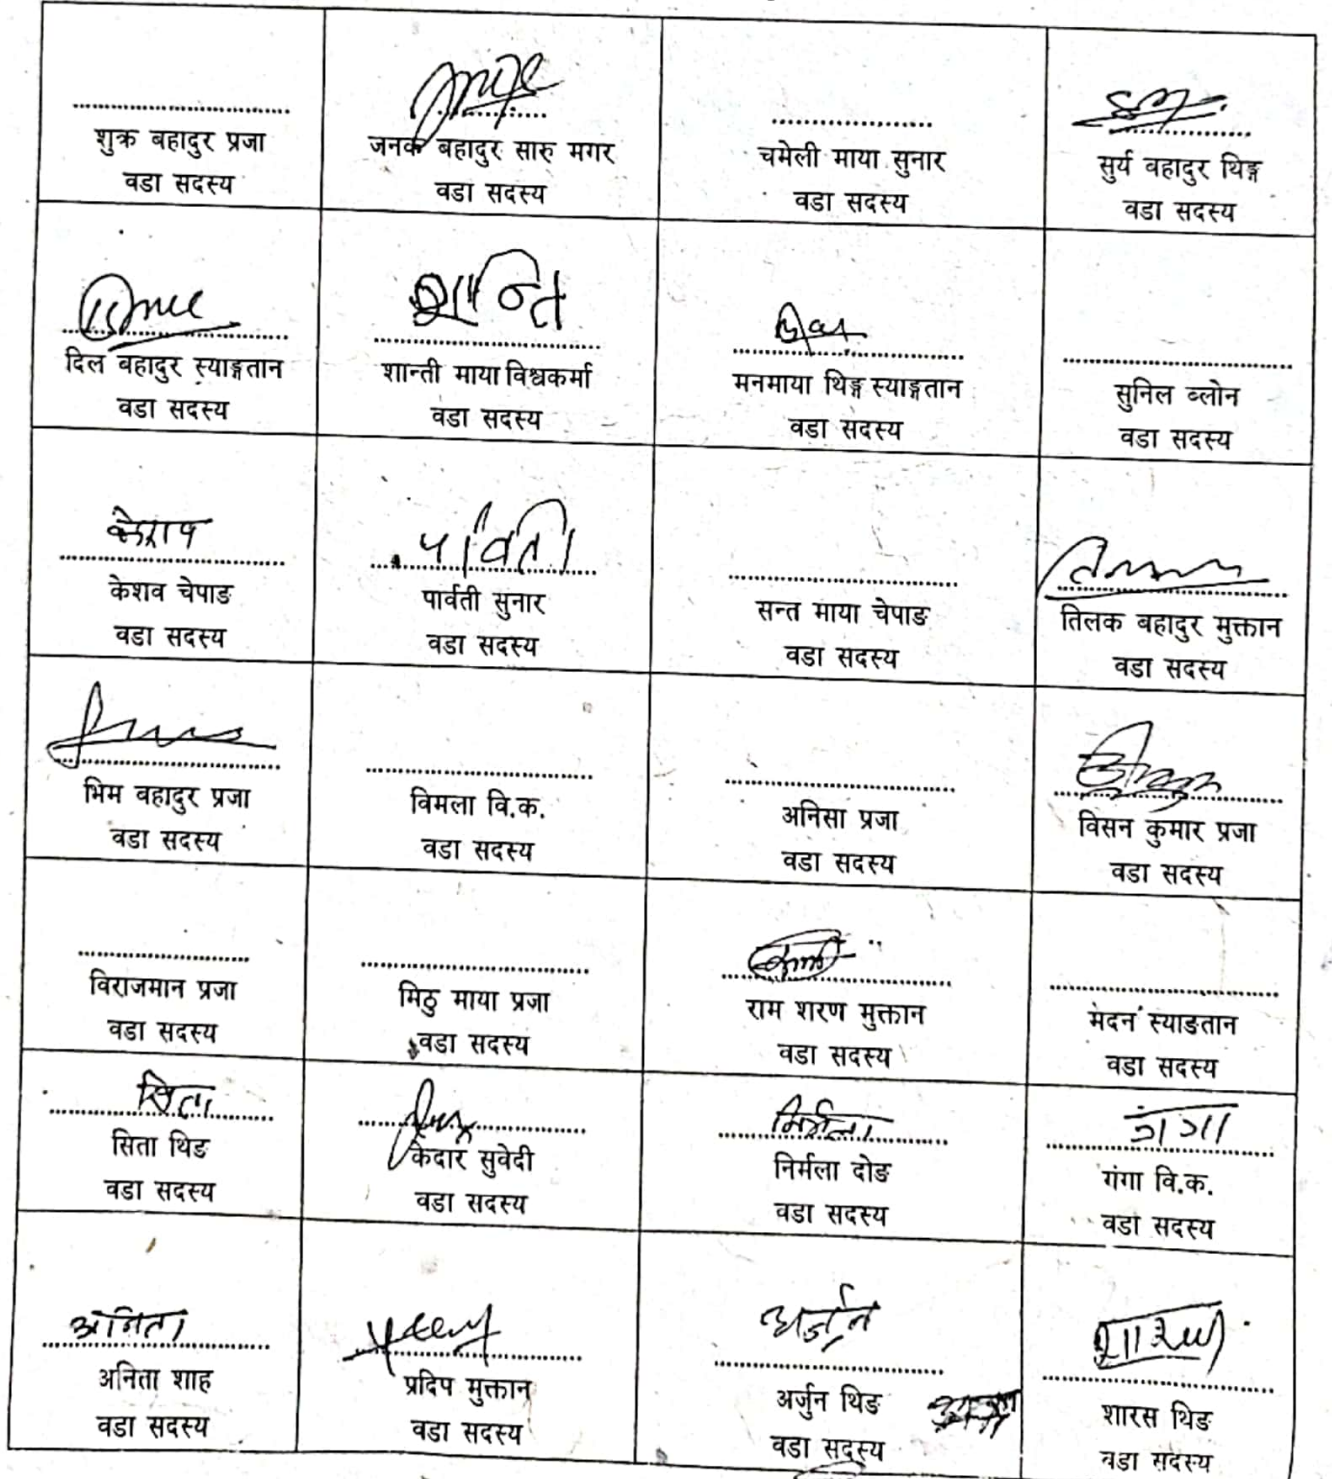 शुक्र बहादुर प्रजा
वडा सदस्य
जनक बहादुर सारु मगर
वडा सदस्य
चमेली माया सुनार
वडा सदस्य
सुर्य वहादुर थिङ्ग
वडा सदस्य
दिल बहादुर स्याङ्गतान
वडा सदस्य
शान्ति
शान्ती माया विश्वकर्मा
वडा सदस्य
मनमाया थिङ्ग स्याङ्गतान
वडा सदस्य
सुनिल ब्लोन
वडा सदस्य
केशव
केशव चेपाङ
वडा सदस्य
पार्वती सुनार
वडा सदस्य
सन्त माया चेपाङ
वडा सदस्य
तिलक बहादुर मुक्तान
वडा सदस्य
भिम वहादुर प्रजा
वडा सदस्य
विमला वि.क.
वडा सदस्य
अनिसा प्रजा
वडा सदस्य
विसन कुमार प्रजा
वडा सदस्य
विराजमान प्रजा
वडा सदस्य
मिठु माया प्रजा
वडा सदस्य
राम शरण मुक्तान
वडा सदस्य
मदन स्याङतान
वडा सदस्य
सिता
सिता थिङ
वडा सदस्य
केदार सुवेदी
वडा सदस्य
निर्मला
निर्मला दोङ
वडा सदस्य
गंगा
गंगा वि.क.
वडा सदस्य
अनिता
अनिता शाह
वडा सदस्य
प्रदिप मुक्तान
वडा सदस्य
अर्जुन
अर्जुन थिङ
वडा सदस्य
शारस थिङ
वडा सदस्य